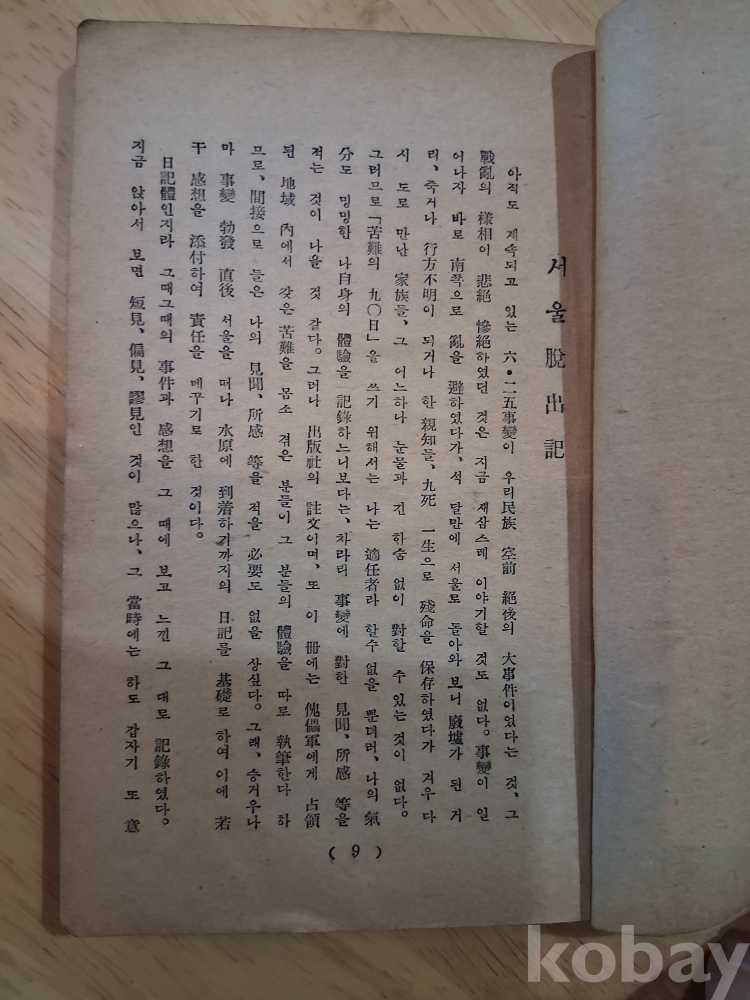 서울脫出記
아직도 계속되고 있는 六·二五事變이 우리民族 空前 絕後의 大事件이었다는 것, 그
戰亂의 樣相이 悲絕 慘絕하였던 것은 지금 재삼스레 이야기할 것도 없다。事變이 일
어나자 바로 南쪽으로 亂을 避하였다가, 석 달만에 서울로 돌아와 보니 廢墟가 된 거
리, 죽거나 行方不明이 되거나 한 親知들, 九死 一生으로 殘命을 保存하였다가 겨우 다
시 도로 만난 家族들, 그 어느하나 눈물과 긴 한숨 없이 對한 수 있는 것이 없다。
그러므로「苦難의 九〇日」을 쓰기 위해서는 나는 適任者라 할수 없을 뿐더러, 나의 氣
分도 밍밍한 나自身의 體驗을 記錄하느니보다는, 차라리 事變에 對한 見聞、所感 等을
적는 것이 나을 것 같다。그러나 出版社의 註文이며, 또 이 册에는 傀儡軍에게 占領
된 地域 內에서 갖은 苦難을 몸소 겪은 분들이 그 분들의 體驗을 따로 執筆한다 하
므로, 間接으로 들은 나의 見聞、所感 等을 적을 必要도 없을 상싶다。그래, 층거우나
마 事變 勃發 直後 서울을 떠나 水原에 到着하기까지의 日記를 基礎로 하여 이에 若
干 感想을 添付하여 責任을 메꾸기로 한 것이다。
日記體인지라 그때그때의 事件과 感想을 그 때에 보고 느낀 그 대로 記錄하였다。
지금 앉아서 보면 短見、偏見、謬見인 것이 많으나, 그 當時에는 하도 갑자기 또 意
( 9 )
kobay